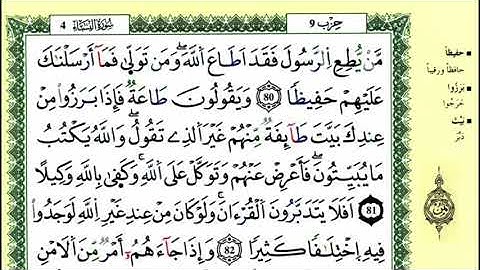 حِزْب 9
سُورَةُ النِّسَاءِ 4
مَّنْ يُّطِعِ اِ۬لرَّسُولَ فَقَدَ اَطَاعَ اَ۬للَّهَۖ وَمَن تَوَلّ۪ىٰ فَمَآ أَرْسَلْنَٰكَ
عَلَيْهِمْ حَفِيظاٗ 80 وَيَقُولُونَ طَاعَةٞ فَإِذَا بَرَزُواْ مِنْ
عِندِكَ بَيَّتَ طَآئِفَةٞ مِّنْهُمْ غَيْرَ اَ۬لذِے تَقُولُۖ وَاللَّهُ يَكْتُبُ
مَا يُبَيِّتُونَۖ فَأَعْرِضْ عَنْهُمْ وَتَوَكَّلْ عَلَى اَ۬للَّهِۖ وَكَف۪ىٰ بِاللَّهِ وَكِيلاًۖ
81 اَفَلَا يَتَدَبَّرُونَ اَ۬لْقُرْءَانَۖ وَلَوْ كَانَ مِنْ عِندِ غَيْرِ اِ۬للَّهِ لَوَجَدُواْ
فِيهِ اِ۪خْتِلَٰفاٗ كَثِيراٗۖ 82 وَإِذَا جَآءَهُمُۥٓ أَمْرٞ مِّنَ اَ۬لَامْنِ
حَفِيظاً
حافظاً ورقيباً
بَرَزُوا
خَرَجُوا
بَيَّتَ
دَبَّرَ